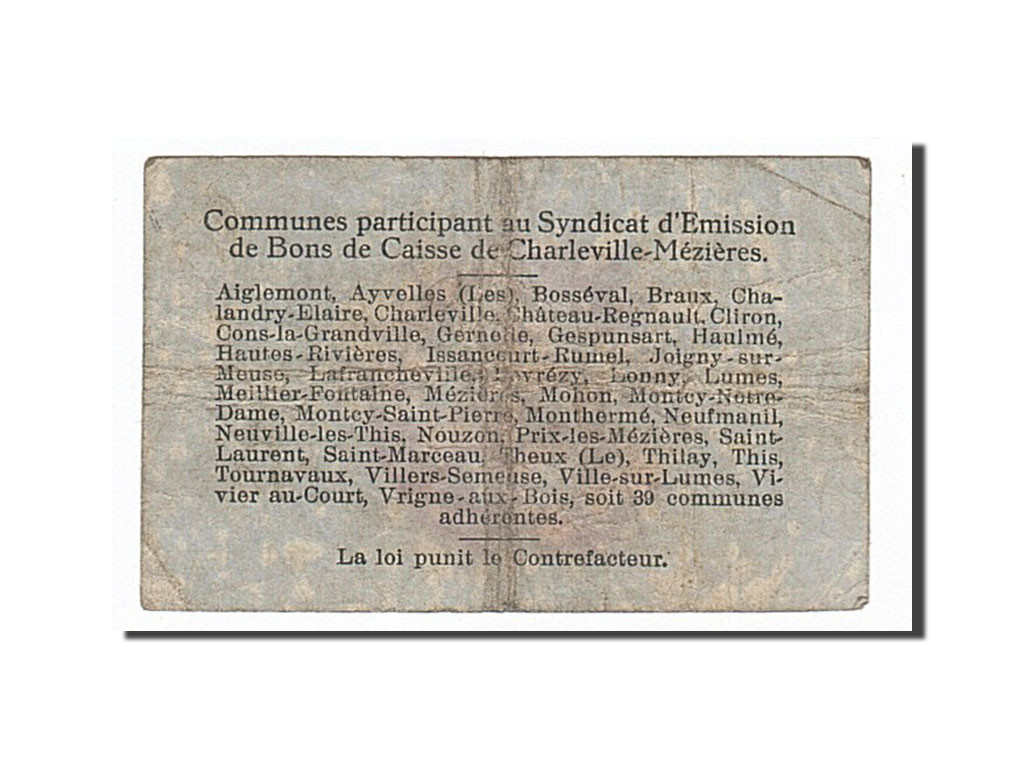 Communes participant au Syndicat d'Emission
de Bons de Caisse de Charleville-Mézières.
Aiglemont, Ayvelles (Les), Bosséval, Braux, Cha-
landry-Elaire, Charleville, Château-Regnault, Cliron,
Cons-la-Grandville, Gernelle, Gespunsart, Haulmé,
Hautes-Rivières, Issancourt-Rumel, Joigny-sur-
Meuse, Lafrancheville, Lonny, Lumes,
Meillier-Fontaine, Mézières, Mohon, Montcy-Notre-
Dame, Montcy-Saint-Pierre, Monthermé, Neufmanil,
Neuville-les-This, Nouzon, Prix-les-Mézières, Saint-
Laurent, Saint-Marceau, Theux (Le), Thilay, This,
Tournavaux, Villers-Semeuse, Ville-sur-Lumes, Vi-
vier au-Court, Vrigne-aux-Bois, soit 39 communes
adhérentes.
La loi punit le Contrefacteur.